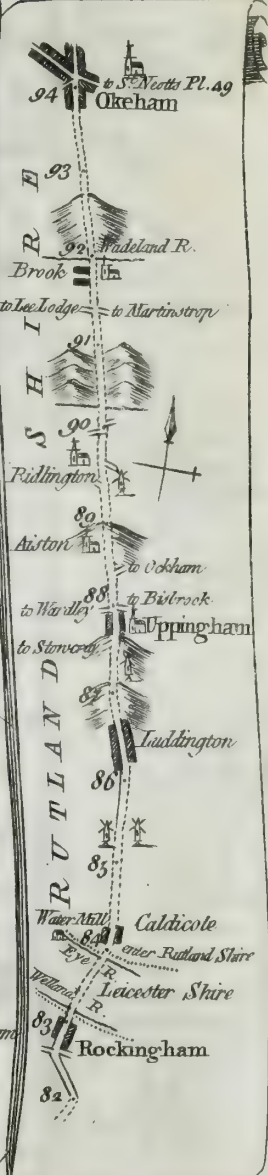 to St. Neotts Pl. 49
94 Okeham
93
92 Wadeland R.
Brook
to Lee Lodge to Martinstrop
91
90
Ridlington
89
Aiston
to Ockham
88
to Wardley to Bisbrook
Uppingham
to Stonvray
87
Luddington
86
85
Water Mill 84 Caldicole
Eye R. enter Rutland Shire
Welland R. Leicester Shire
83
Rockingham
82
RUTLAND SHIRE